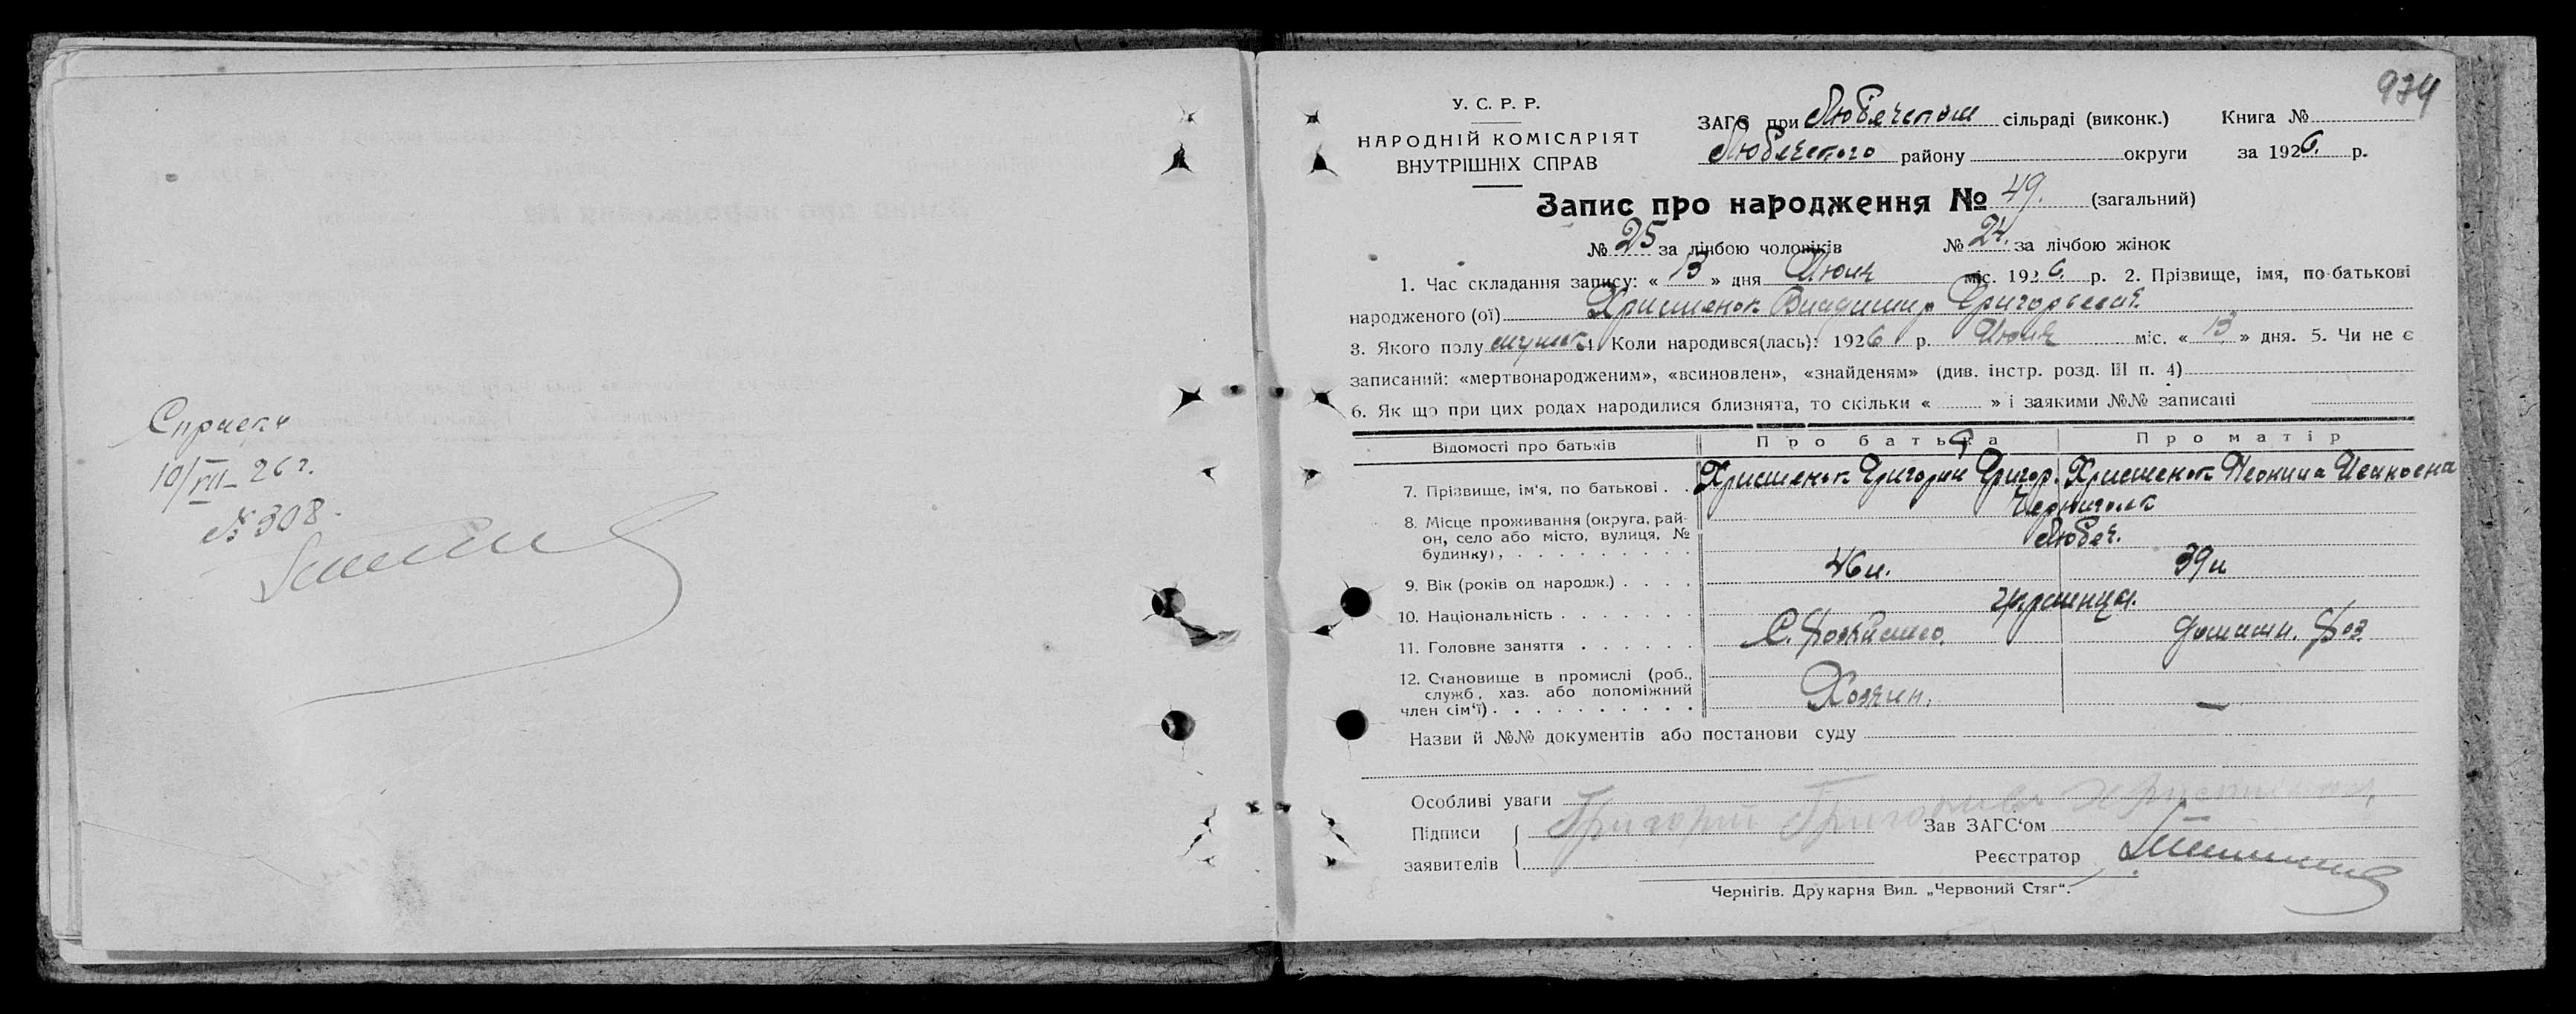 Справка
10/VII-26 г.
№ 308.
934
У. С. Р. Р.
НАРОДНІЙ КОМІСАРІЯТ
ВНУТРІШНІХ СПРАВ
ЗАГС при Любечском сільраді (виконк.) Книга №
Любечского району округи за 1926. р.
Запис про народження № 49. (загальний)
№ 25 за лічбою чоловіків № 24. за лічбою жінок
1. Час складання запису: « 13 » дня Июня міс. 1926. р. 2. Прізвище, імя, по-батькові
народженого (ої) Христенок Владимир Григорьевич.
3. Якого полу мужск. 4. Коли народився(лась): 1926 р. Июня міс. « 13 » дня. 5. Чи не є
записаний: «мертвонародженим», «всиновлен», «знайденям» (див. інстр. розд. III п. 4)
6. Як що при цих родах народилися близнята, то скільки « » і заякими №№ записані
Відомості про батьків Про батька Про матір
7. Прізвище, ім'я, по батькові . . Христенок Григорий Григор. Христенок Неонила Ивановна
8. Місце проживання (округа, рай-
он, село або місто, вулиця, №
будинку), . . . . . . . . .
Любеч.
9. Вік (років од народж.) . . . . 46 л. 39 л
10. Національність . . . . . . . украинцы.
11. Головне заняття . . . . . . С. Хозяйство. домашн. Хоз
12. Становище в промислі (роб.,
служб., хаз. або допоміжний
член сім'ї) . . . . . . . . . . Хозяин. —
Назви й №№ документів або постанови суду
Особливі уваги
Підписи
заявителів
Григорій Григориев Христинок
Зав ЗАГС'ом
Реєстратор
Чернігів. Друкарня Вид. „Червоний Стяг".